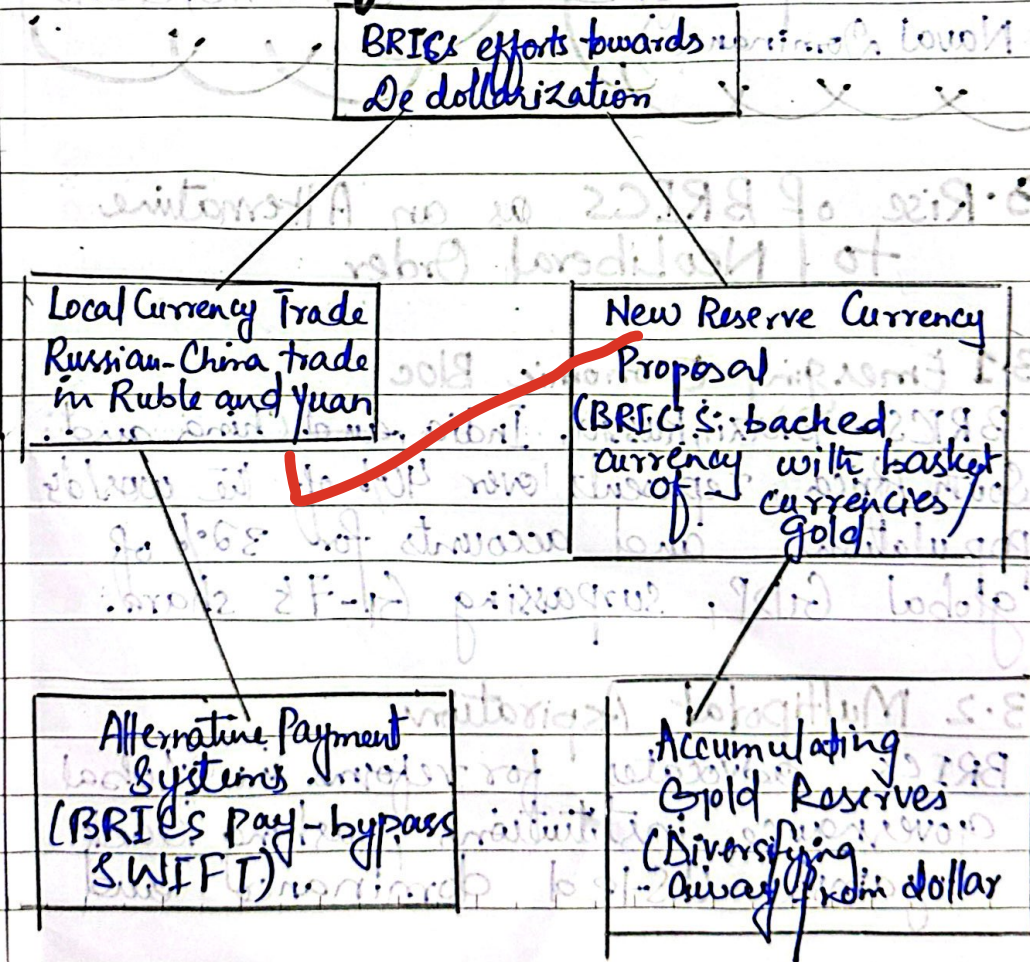 BRICs efforts towards
De dollarization
Local Currency Trade
Russian-China trade
in Ruble and Yuan
New Reserve Currency
Proposal
(BRICS: backed
currency with basket
of currencies/
gold
Alternative Payment
Systems
(BRICs Pay-bypass
SWIFT)
Accumulating
Gold Reserves
(Diversifying
away from dollar